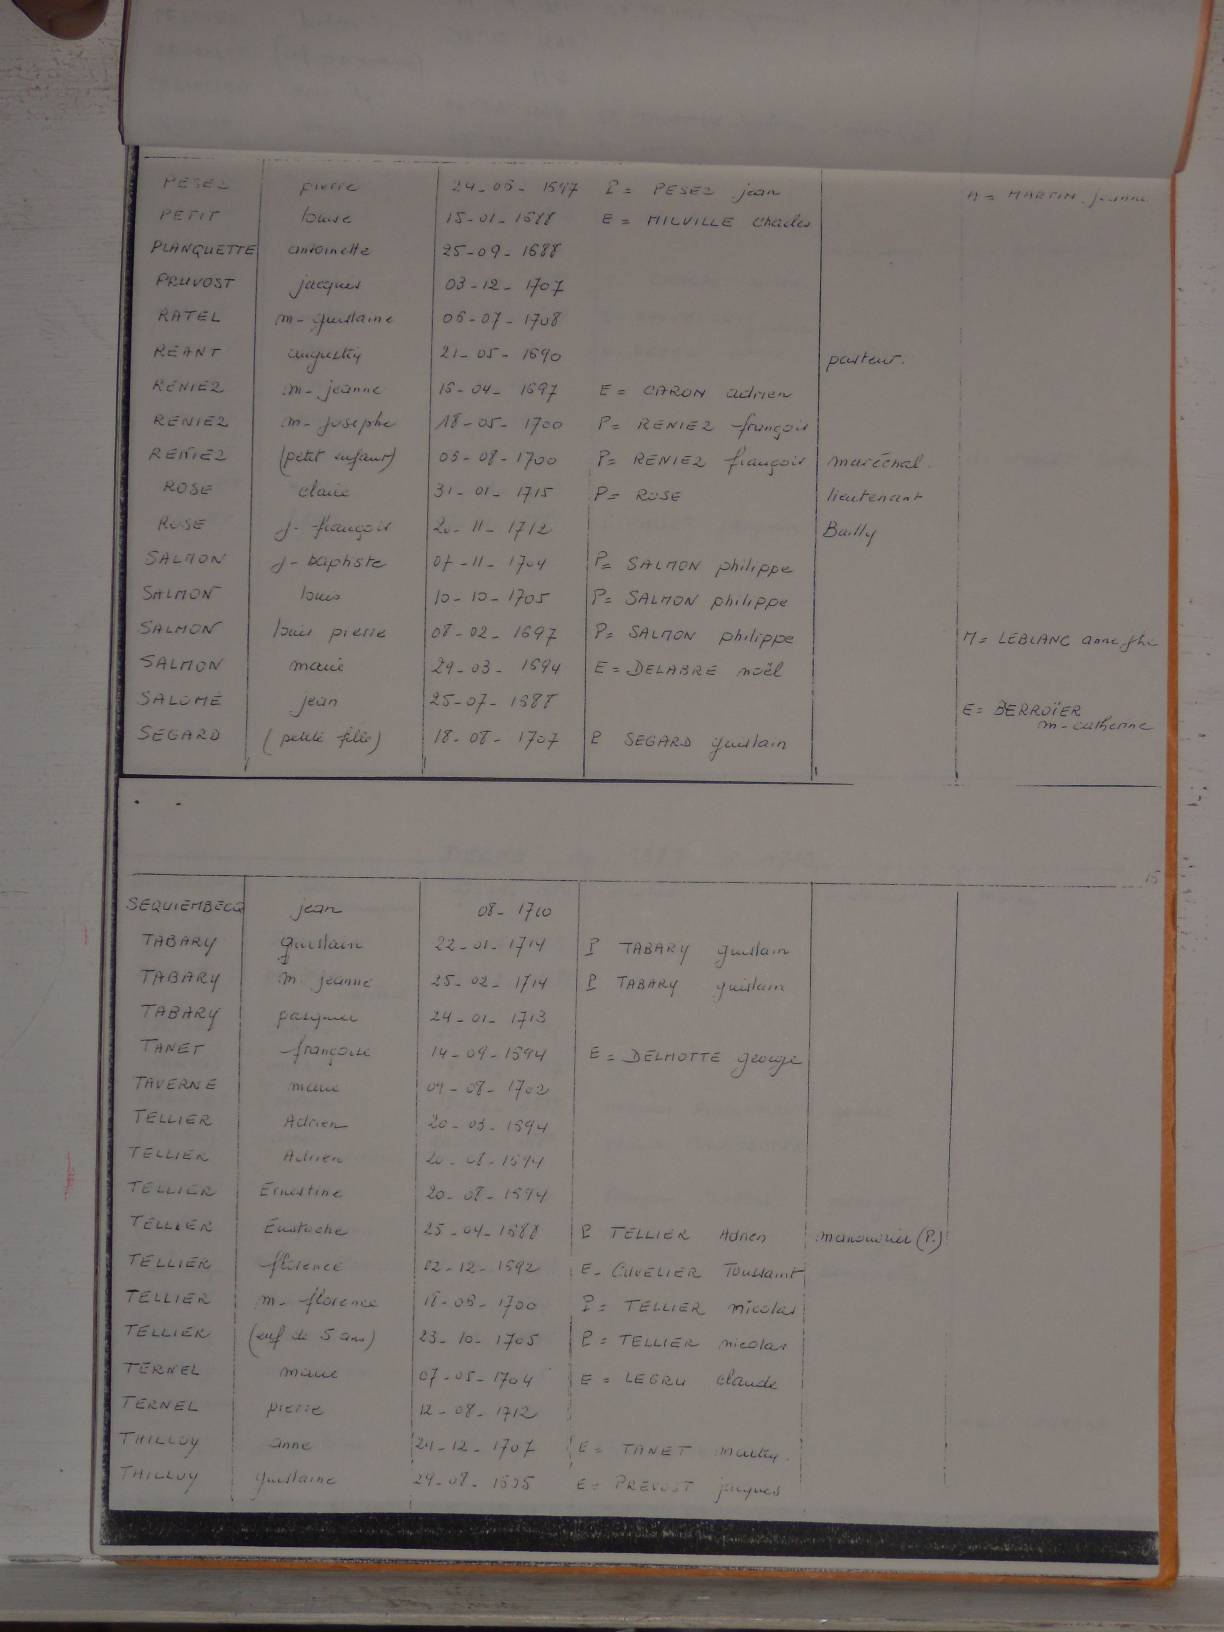 PESEZ pierre 24-06-1697 P= PESEZ jean M= MARTIN jeanne
PETIT louise 15-01-1688 E= MILVILLE Charles
PLANQUETTE antoinette 25-09-1688
PRUVOST jacques 03-12-1707
RATEL m-guislaine 06-07-1708
REANT augustin 21-05-1690 pasteur.
RENIEZ m-jeanne 16-04-1697 E= CARON adrien
RENIEZ m-josephe 18-05-1700 P= RENIEZ françois
RENIEZ (petit enfant) 06-08-1700 P= RENIEZ françois maréchal.
ROSE claire 31-01-1715 P= ROSE lieutenant
ROSE j-françois 20-11-1712 Bailly
SALMON j-baptiste 07-11-1704 P= SALMON philippe
SALMON louis 10-10-1705 P= SALMON philippe
SALMON louis pierre 08-02-1697 P= SALMON philippe M= LEBLANC anne
SALMON marie 29-03-1694 E= DELABRE noël
SALOMÉ jean 25-07-1688 E= BERROÏER m-catherine
SEGARD (petite fille) 18-08-1707 P SEGARD guislain
15
SEQUIEMBECQ jean 08-1710
TABARY guislain 22-01-1714 P TABARY guislain
TABARY m jeanne 25-02-1714 P TABARY guislain
TABARY pasquier 24-01-1713
TANET françoise 14-09-1694 E= DELMOTTE george
TAVERNE marie 04-08-1702
TELLIER Adrien 20-08-1694
TELLIER Adrien 20-08-1694
TELLIER Ernestine 20-08-1694
TELLIER Eustache 25-04-1688 P TELLIER Adrien manouvrier (P.)
TELLIER florence 02-12-1692 E- CUVELIER Toussaint
TELLIER m-florence 18-06-1700 P= TELLIER nicolas
TELLIER (enf de 5 ans) 23-10-1705 P= TELLIER nicolas
TERNEL marie 07-05-1704 E= LEGRU claude
TERNEL pierre 12-08-1712
THILLOY anne 24-12-1707 E= TANET martin.
THILLOY guislaine 29-08-1695 E= PREVOST jacques